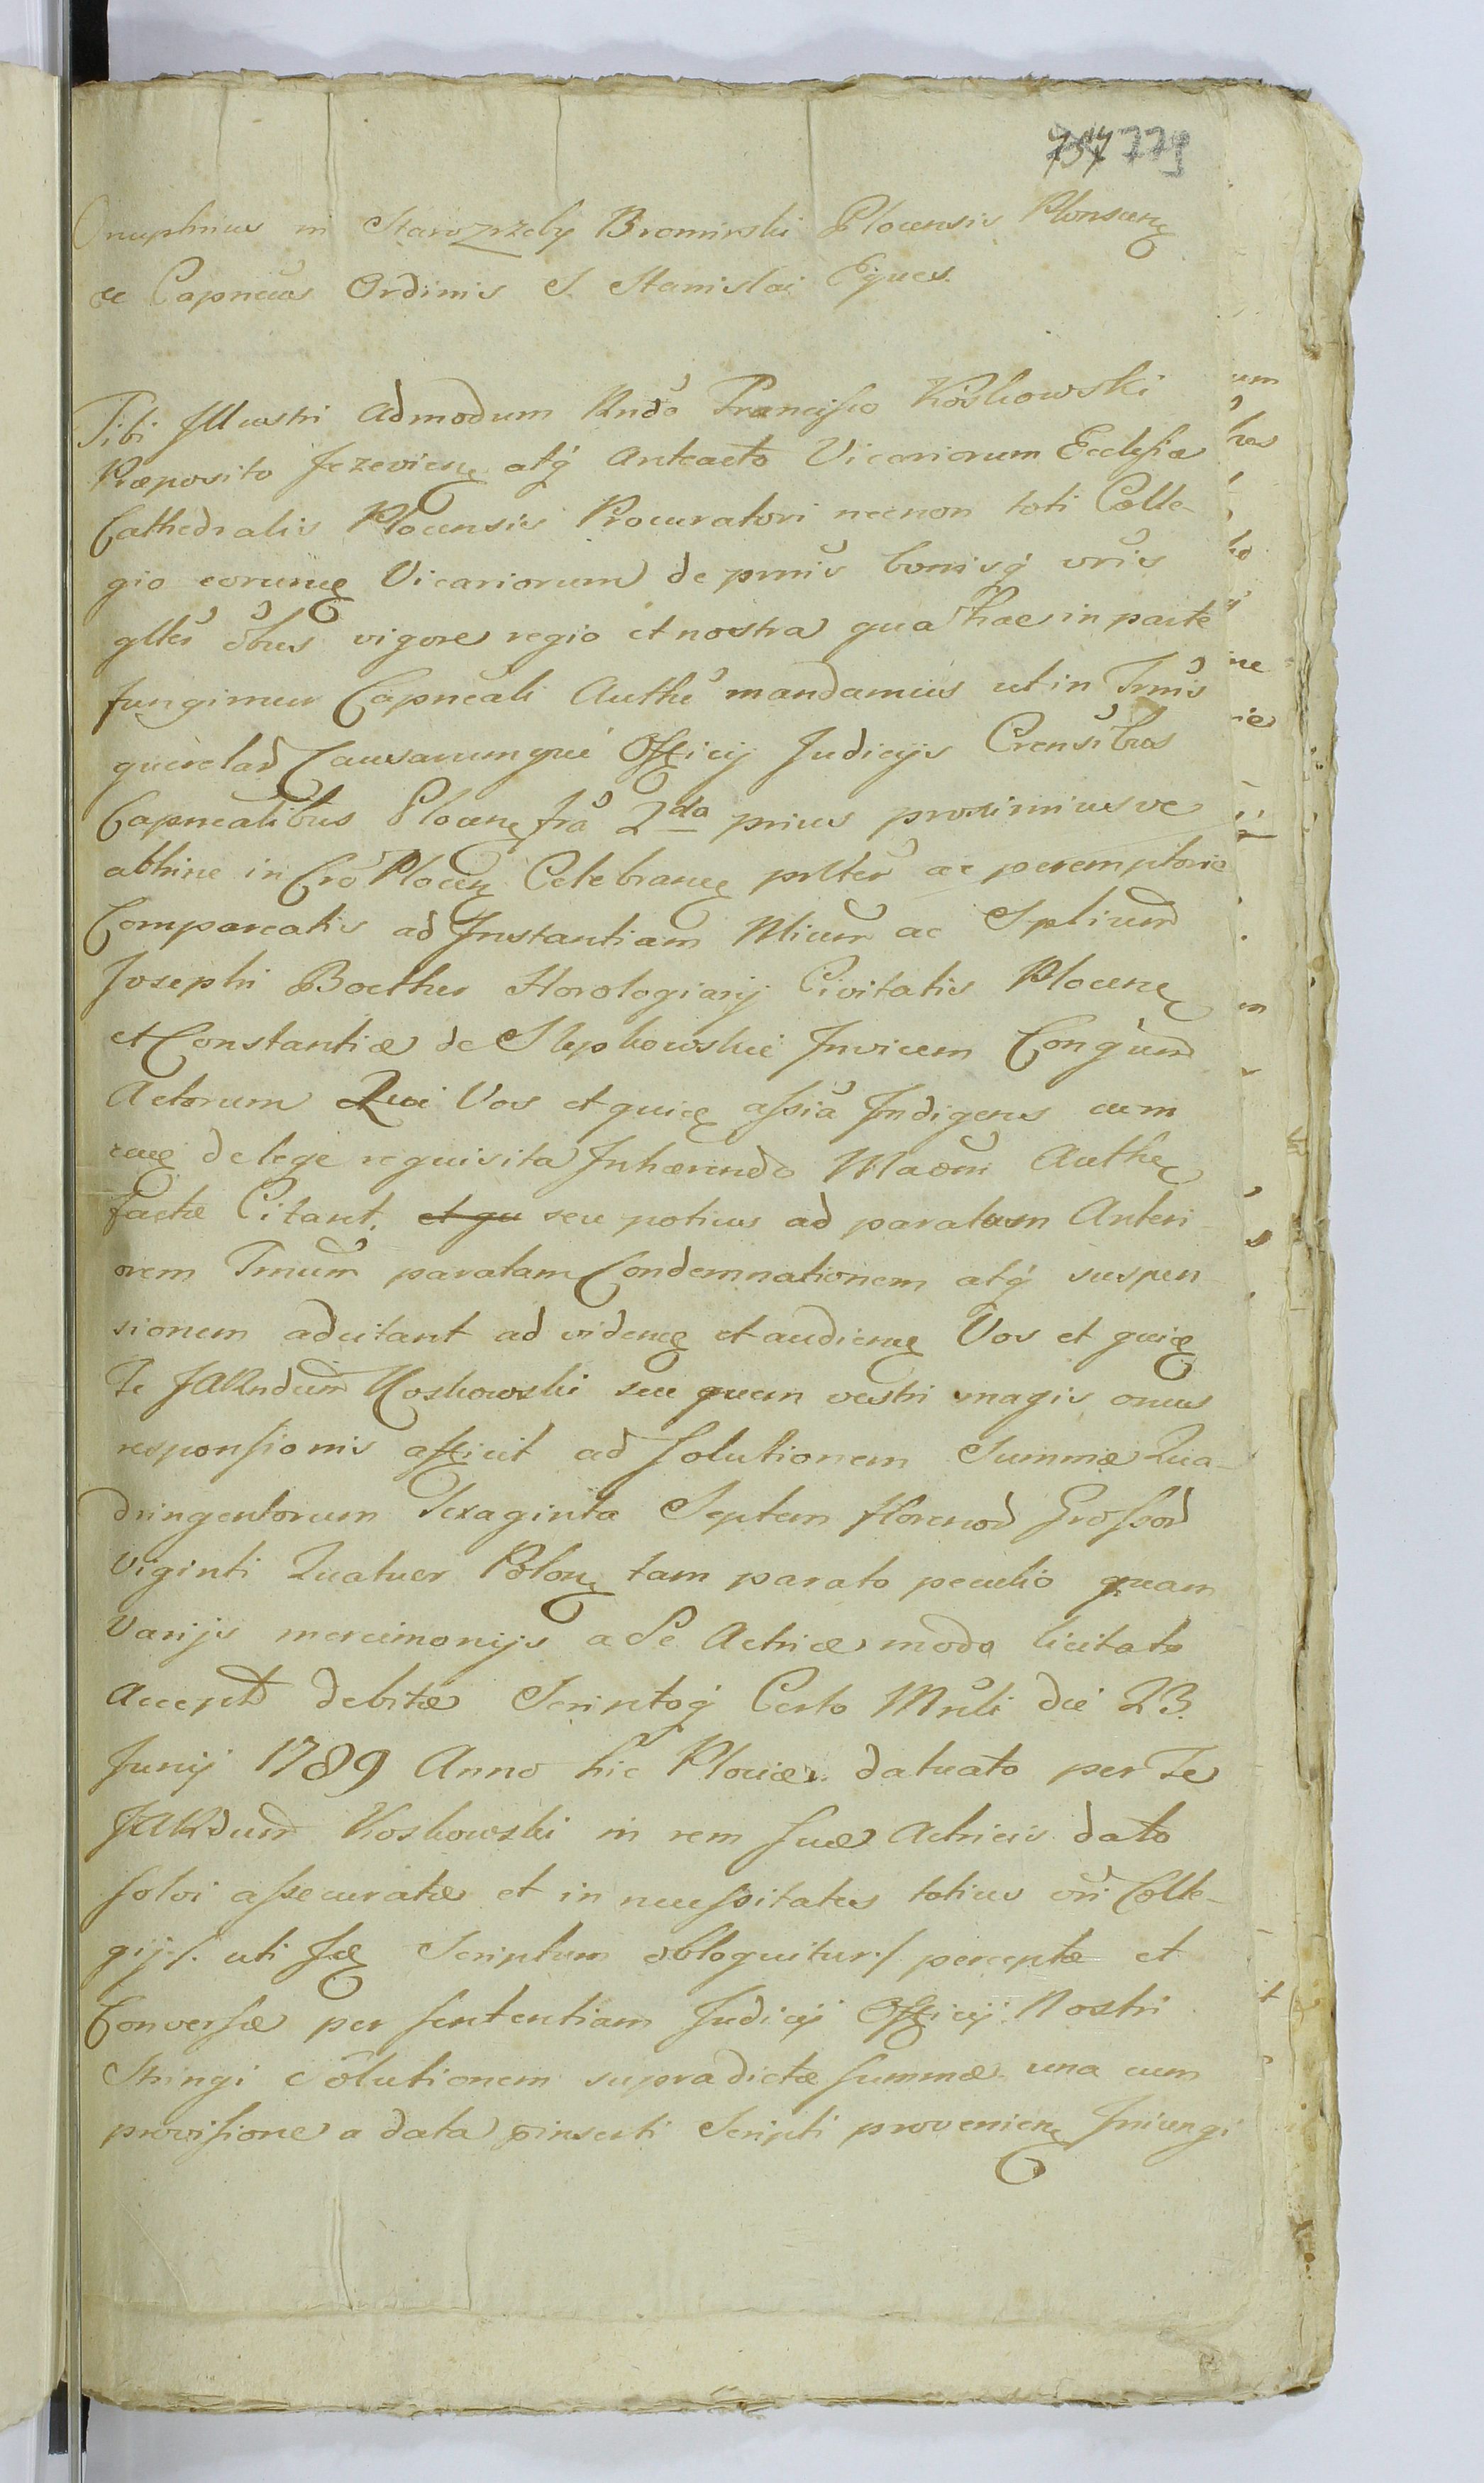 757 779
Onuphrius in Starozrzeby Bromirski Plocensis Plonscen
ac Capneus Ordinis S. Stanislai Eques.
Tibi Illustri admodum Rndo Francisco Koskowski
Præposito Jezevien atq́ Anteacto Vicariorum Ecclesiæ
Cathedralis Plocensis Procuratori necnon toti Colle-
gio eorund Vicariorum de prnis bonisq́ vris
gltér obus vigore regio et nostra qua hac in parte
fungimur Capneali Authe mandamus ut in Trnis
querelar Causarumque Officij Judicijs Crensibus
Capnealibus Plocen fra 2da prius proximiusve
abhinc in Cro Plocen Celebrand pslter ac peremptorie
Compareatis ad Instantiam Nlium ac Splium
Josephi Boether Horologiarij Civitatis Plocen
et Constantiæ de Slepkowskie Invicem Congum
Actorum Qui Vos et quid assia Indigens cum
eud de lege requisita Inhærendo Maoni Authe
factæ Citant. et qu seu potius ad paratum Anteri
orem Trnum paratam Condemnationem atq́ suspen
sionem adcitant ad vidend et audiend Vos et quid
Te JARndum Koskowski seu quem vestri magis onus
responsionis afficit ad Solutionem Summæ Qua-
dringentorum Sexaginta Septem florenor Grossor
Viginti Quatuor Polon tam parato peculio quam
Varijs mercimonijs a Se Actricæ modo licitato
Accept debitæ Scriptoq́ Certo Mnli die 23.
Junij 1789 Anno hic Plociæ datuato per Te
JARdum Koskowski in rem suæ Actricis dato
solvi assecuratæ et in necessitates totius vri Colle-
gij /. uti Id Scriptum obloquitur ./ perceptæ et
Conversæ per sententiam Judicij Officij Nostri
Stringi Solutionem supradictæ summæ una cum
provisione a data præinserti Scripti provenien Iniungi